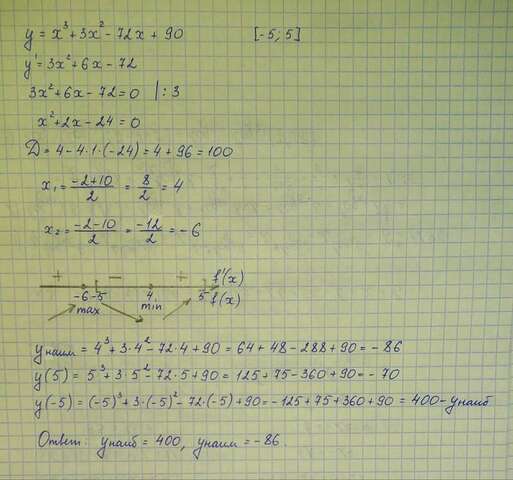 y = x³ + 3x² - 72x + 90 [-5; 5]
y' = 3x² + 6x - 72
3x² + 6x - 72 = 0 | : 3
x² + 2x - 24 = 0
D = 4 - 4·1·(-24) = 4 + 96 = 100
x₁ = (-2+10)/2 = 8/2 = 4
x₂ = (-2-10)/2 = -12/2 = -6
+ - + f'(x)
-6 -5 4 5 f(x)
max min
yнаим = 4³ + 3·4² - 72·4 + 90 = 64 + 48 - 288 + 90 = -86
y(5) = 5³ + 3·5² - 72·5 + 90 = 125 + 75 - 360 + 90 = -70
y(-5) = (-5)³ + 3·(-5)² - 72·(-5) + 90 = -125 + 75 + 360 + 90 = 400 - yнаиб
Ответ: yнаиб = 400, yнаим = -86.